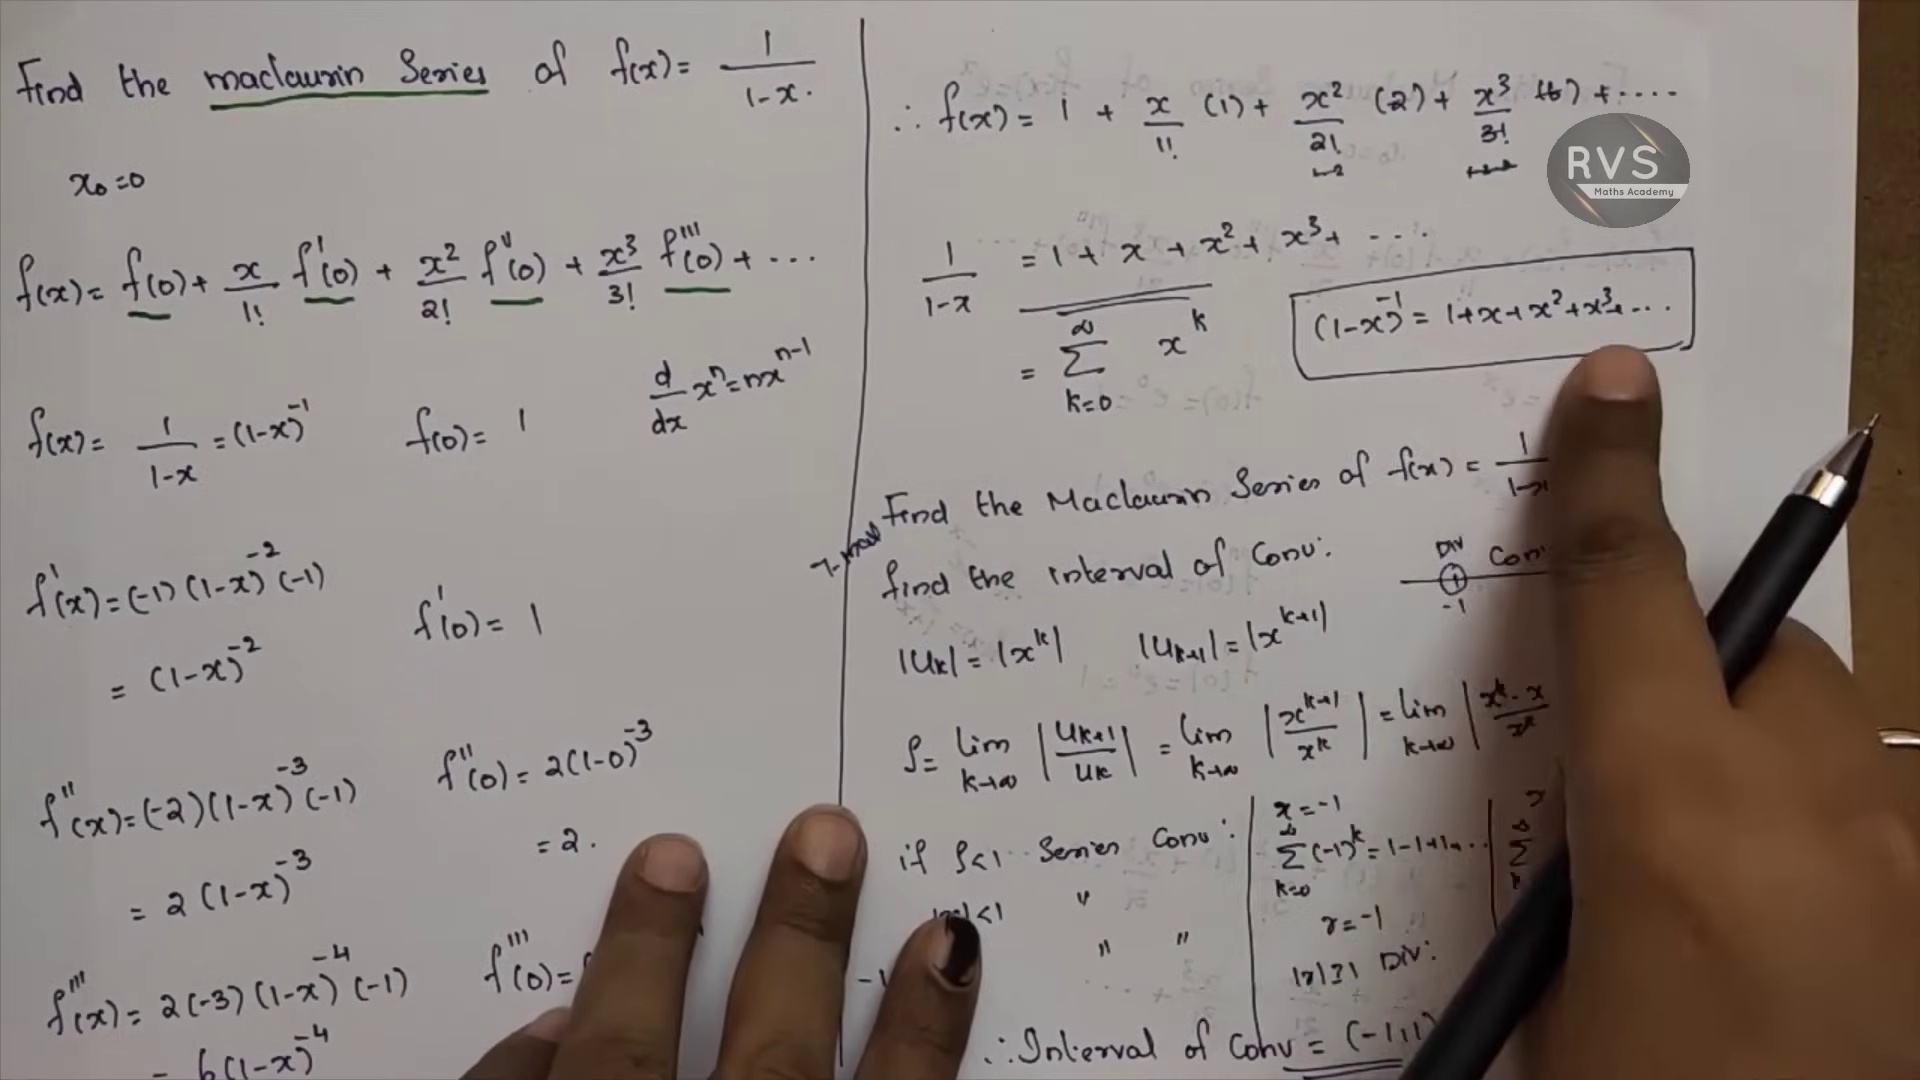 Find the maclaurin Series of f(x) = 1/(1-x).
x₀=0
f(x) = f(0) + x/1! f'(0) + x²/2! f''(0) + x³/3! f'''(0) + ...
d/dx xⁿ = nxⁿ⁻¹
f(x) = 1/(1-x) = (1-x)⁻¹ f(0) = 1
f'(x) = (-1)(1-x)⁻²(-1) f'(0) = 1
= (1-x)⁻²
f''(x) = (-2)(1-x)⁻³(-1) f''(0) = 2(1-0)⁻³
= 2(1-x)⁻³ = 2.
f'''(x) = 2(-3)(1-x)⁻⁴(-1) f'''(0) =
= 6(1-x)⁻⁴
∴ f(x) = 1 + x/1! (1) + x²/2! (2) + x³/3! (6) + ....
RVS
Maths Academy
1/(1-x) = 1 + x + x² + x³ + ....
= ∑ₖ₌₀^∞ xᵏ
(1-x)⁻¹ = 1+x+x²+x³+...
Find the Maclaurin Series of f(x) = 1/(1-x)
find the interval of Conv:
Div
-1
|Uₖ| = |xᵏ| |Uₖ₊₁| = |xᵏ⁺¹|
ρ = lim k→∞ |Uₖ₊₁/Uₖ| = lim k→∞ |xᵏ⁺¹/xᵏ| = lim k→∞ |xᵏ·x/xᵏ
if ρ<1 Series Conv:
<1 "
" "
-1
x = -1
∑ₖ₌₀^∞ (-1)ᵏ = 1-1+1...
r = -1
|r|≥1 Div:
∴ Interval of Conv = (-1,1)